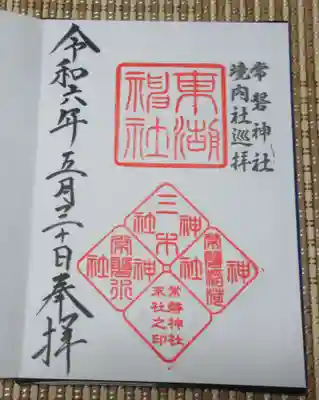 常磐神社
境内社巡拝
東湖
神社
三木
神社
常磐稲荷
神社
神社
常磐神社
末社之印
令和六年五月三十日奉拝